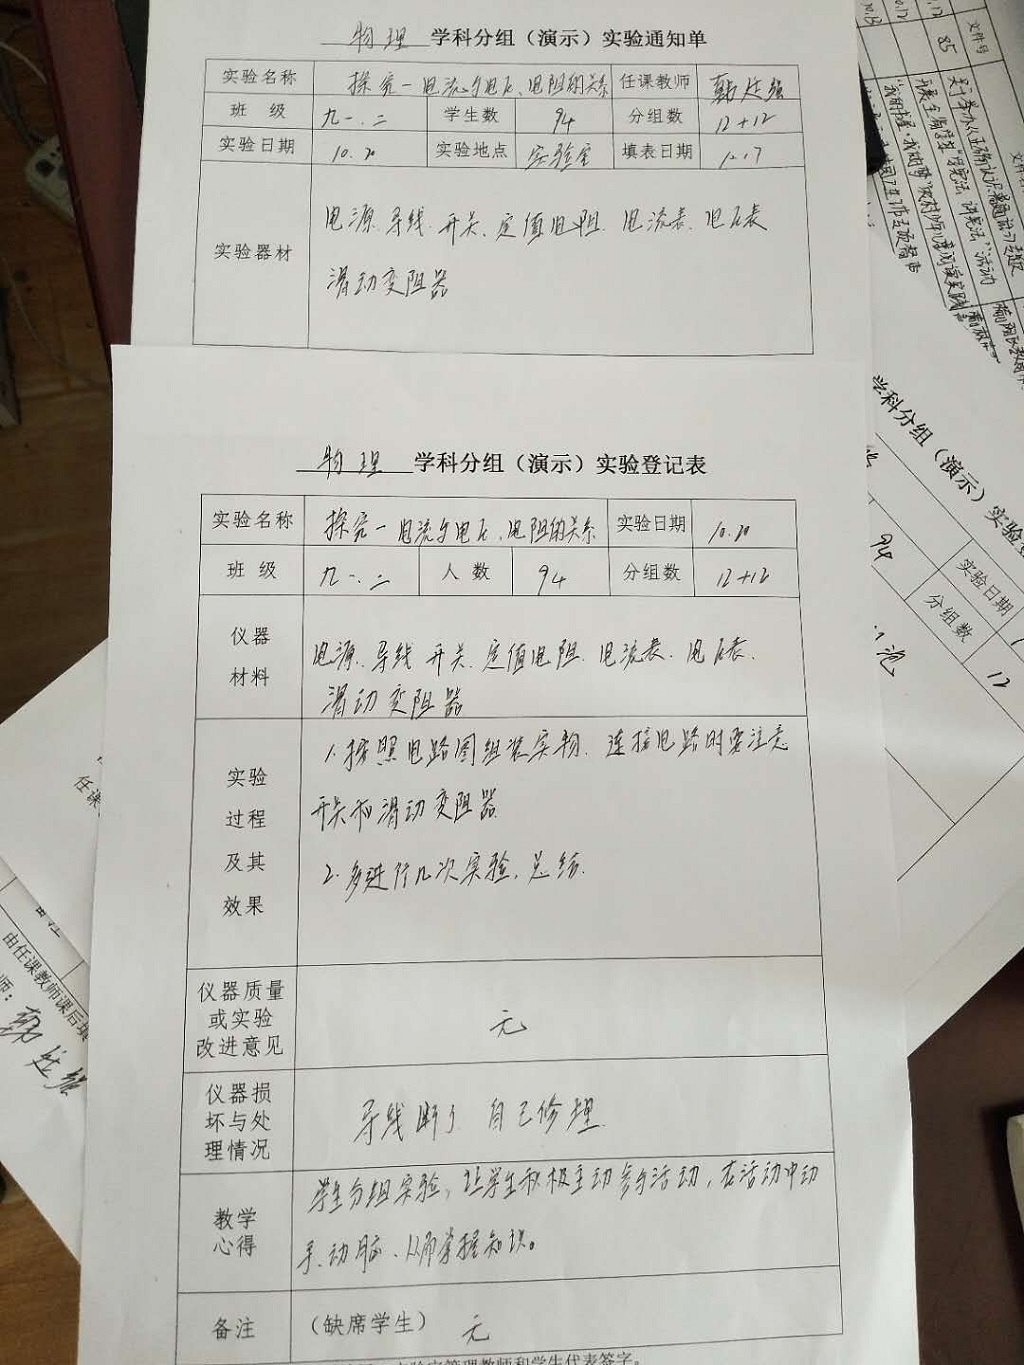 物理 学科分组（演示）实验通知单
实验名称 探究一电流与电压、电阻的关系 任课教师
班 级 九一、二 学生数 94 分组数 12+12
实验日期 10.20 实验地点 实验室 填表日期
实验器材
电源、导线、开关、定值电阻、电流表、电压表
滑动变阻器
物理 学科分组（演示）实验登记表
实验名称 探究一电流与电压、电阻的关系 实验日期 10.20
班 级 九一、二 人 数 94 分组数 12+12
仪器
材料
电源、导线 开关、定值电阻、电流表、电压表、
滑动变阻器
实验
过程
及其
效果
1.按照电路图组装实物、连接电路时要注意
开关和滑动变阻器
2.多进行几次实验、总结.
仪器质量
或实验
改进意见
无
仪器损
坏与处
理情况
导线断了 自己修理
教学
心得
学生分组实验，让学生积极主动参与活动，在活动中动
手、动脑、从而掌握知识。
备注 （缺席学生） 无
学科分组（演示）实验
94 实验日期
分组数 12
任课
备注
由任课教师课后填
师：
文件号
85